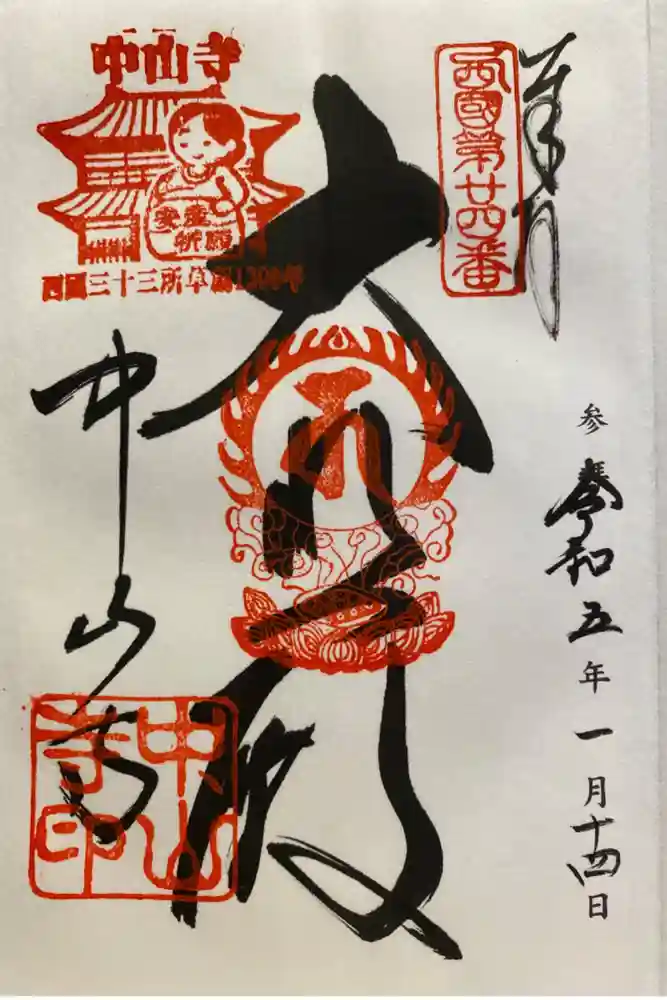 奉拝
西國第廿四番
参 令和五年一月十四日
大悲殿
中山寺
安産
祈願
西国三十三所草創1300年
中山寺
中山
寺印